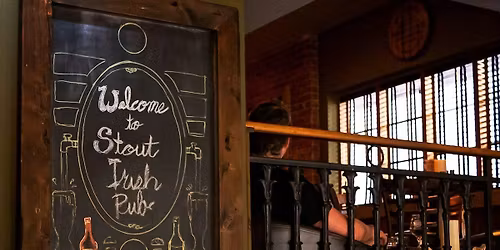 Welcome
to
Stout
Irish
Pub